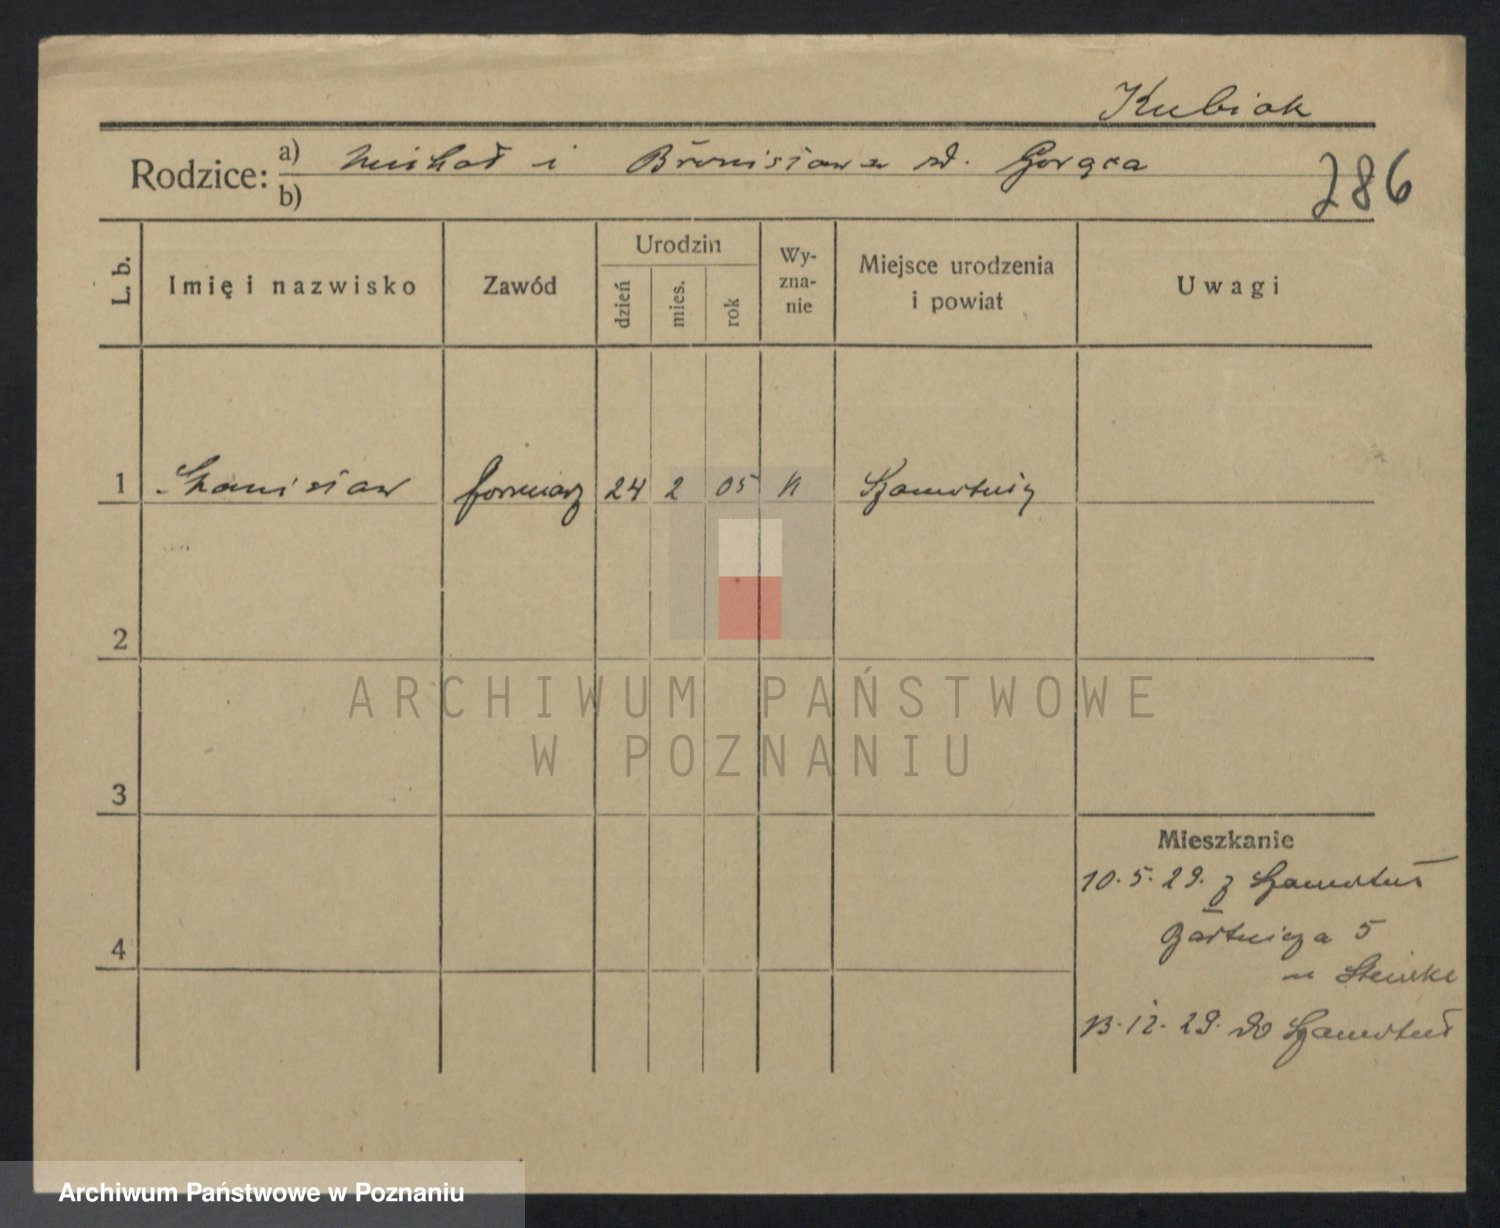 Kubiak
Rodzice: a) Michał i Bronisława zd. Gorąca
b)
286
L. b.
Imię i nazwisko
Zawód
Urodzin
dzień
mies.
rok
Wy-
zna-
nie
Miejsce urodzenia
i powiat
Uwagi
1 Stanisław formierz 24 2 05 k Szamotuły
2
3
4
Mieszkanie
10.5.29. z Szamotuł
5
u Steinke
13.12.29. do Szamotuł
ARCHIWUM PAŃSTWOWE
W POZNANIU
Archiwum Państwowe w Poznaniu